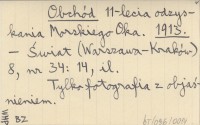 Obchód 11-lecia odzys-
kania Morskiego Oka. 1913.
— Świat (Warszawa-Kraków)
8, nr 34: 14, il.
Tylko fotografia z objaś-
nieniem.
BZ